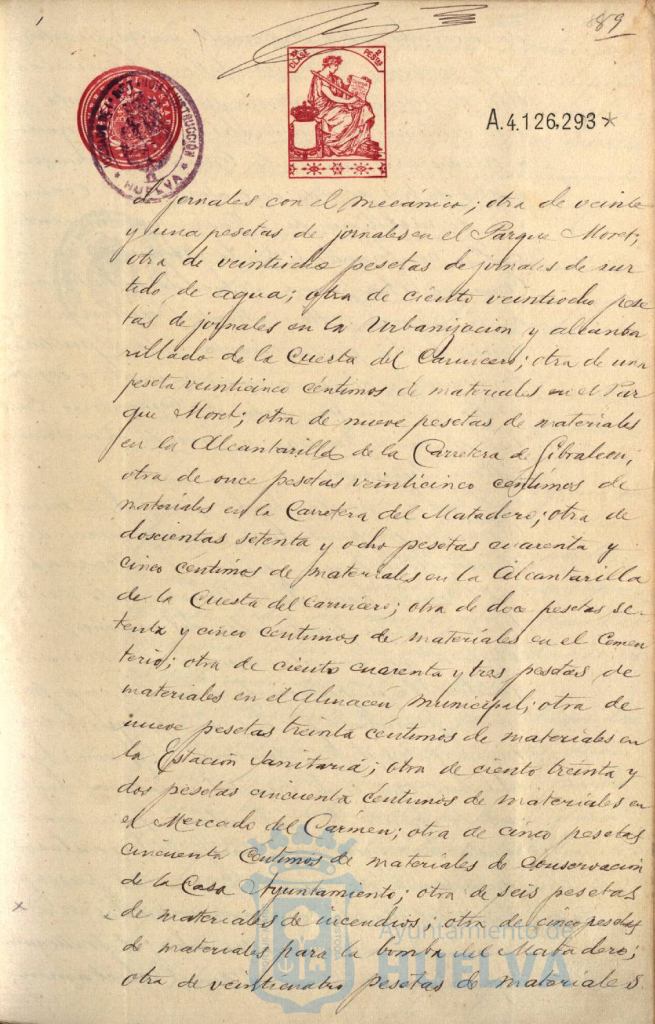 89
CLASE PESTS
HUELVA
A.4.126,293*
de jornales con el mecánico; otra de veinte
y una pesetas de jornales en el Parque Moret;
otra de veintiocho pesetas de jornales de sur
tido de agua; otra de ciento veintiocho pese
tas de jornales en la Urbanizacion y alcanta
rillado de la Cuesta del Carnicero; otra de una
peseta veinticinco céntimos de materiales en el Par
que Moret; otra de nueve pesetas de materiales
en la Alcantarilla de la Carretera de Gibraleon;
otra de once pesetas veinticinco centimos de
materiales en la Carretera del Matadero; otra de
doscientas setenta y ocho pesetas cuarenta y
cinco centimos de materiales en la Alcantarilla
de la Cuesta del Carnicero; otra de doce pesetas se-
tenta y cinco céntimos de materiales en el Cemen
terio; otra de ciento cuarenta y tres pesetas de
materiales en el Almacén municipal; otra de
nueve pesetas treinta centimos de materiales en
la Estación Sanitaria; otra de ciento treinta y
dos pesetas cincuenta céntimos de materiales en
el Mercado del Carmen; otra de cinco pesetas
cincuenta centimos de materiales de conservacion
de la Casa Ayuntamiento; otra de seis pesetas
de materiales de incendios; otra de cinco pesetas
de materiales para la bomba del Matadero;
otra de veinticuatro pesetas de materiales
Ayuntamiento de
HUELVA